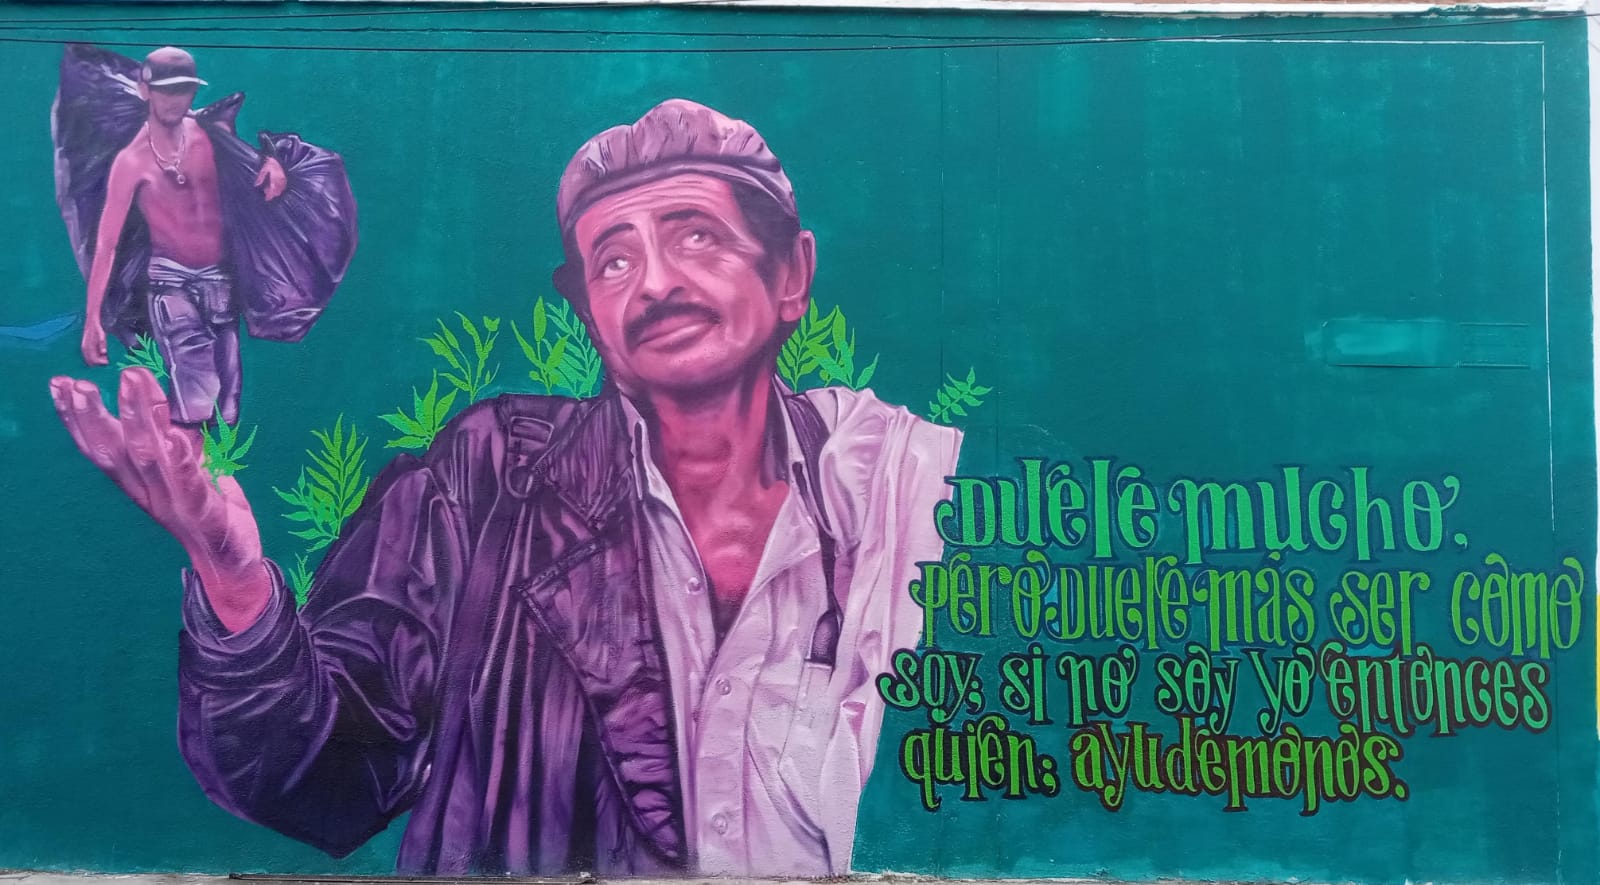 Duele mucho,
pero duele más ser como
soy; si no soy yo entonces
quien; ayudemonos.